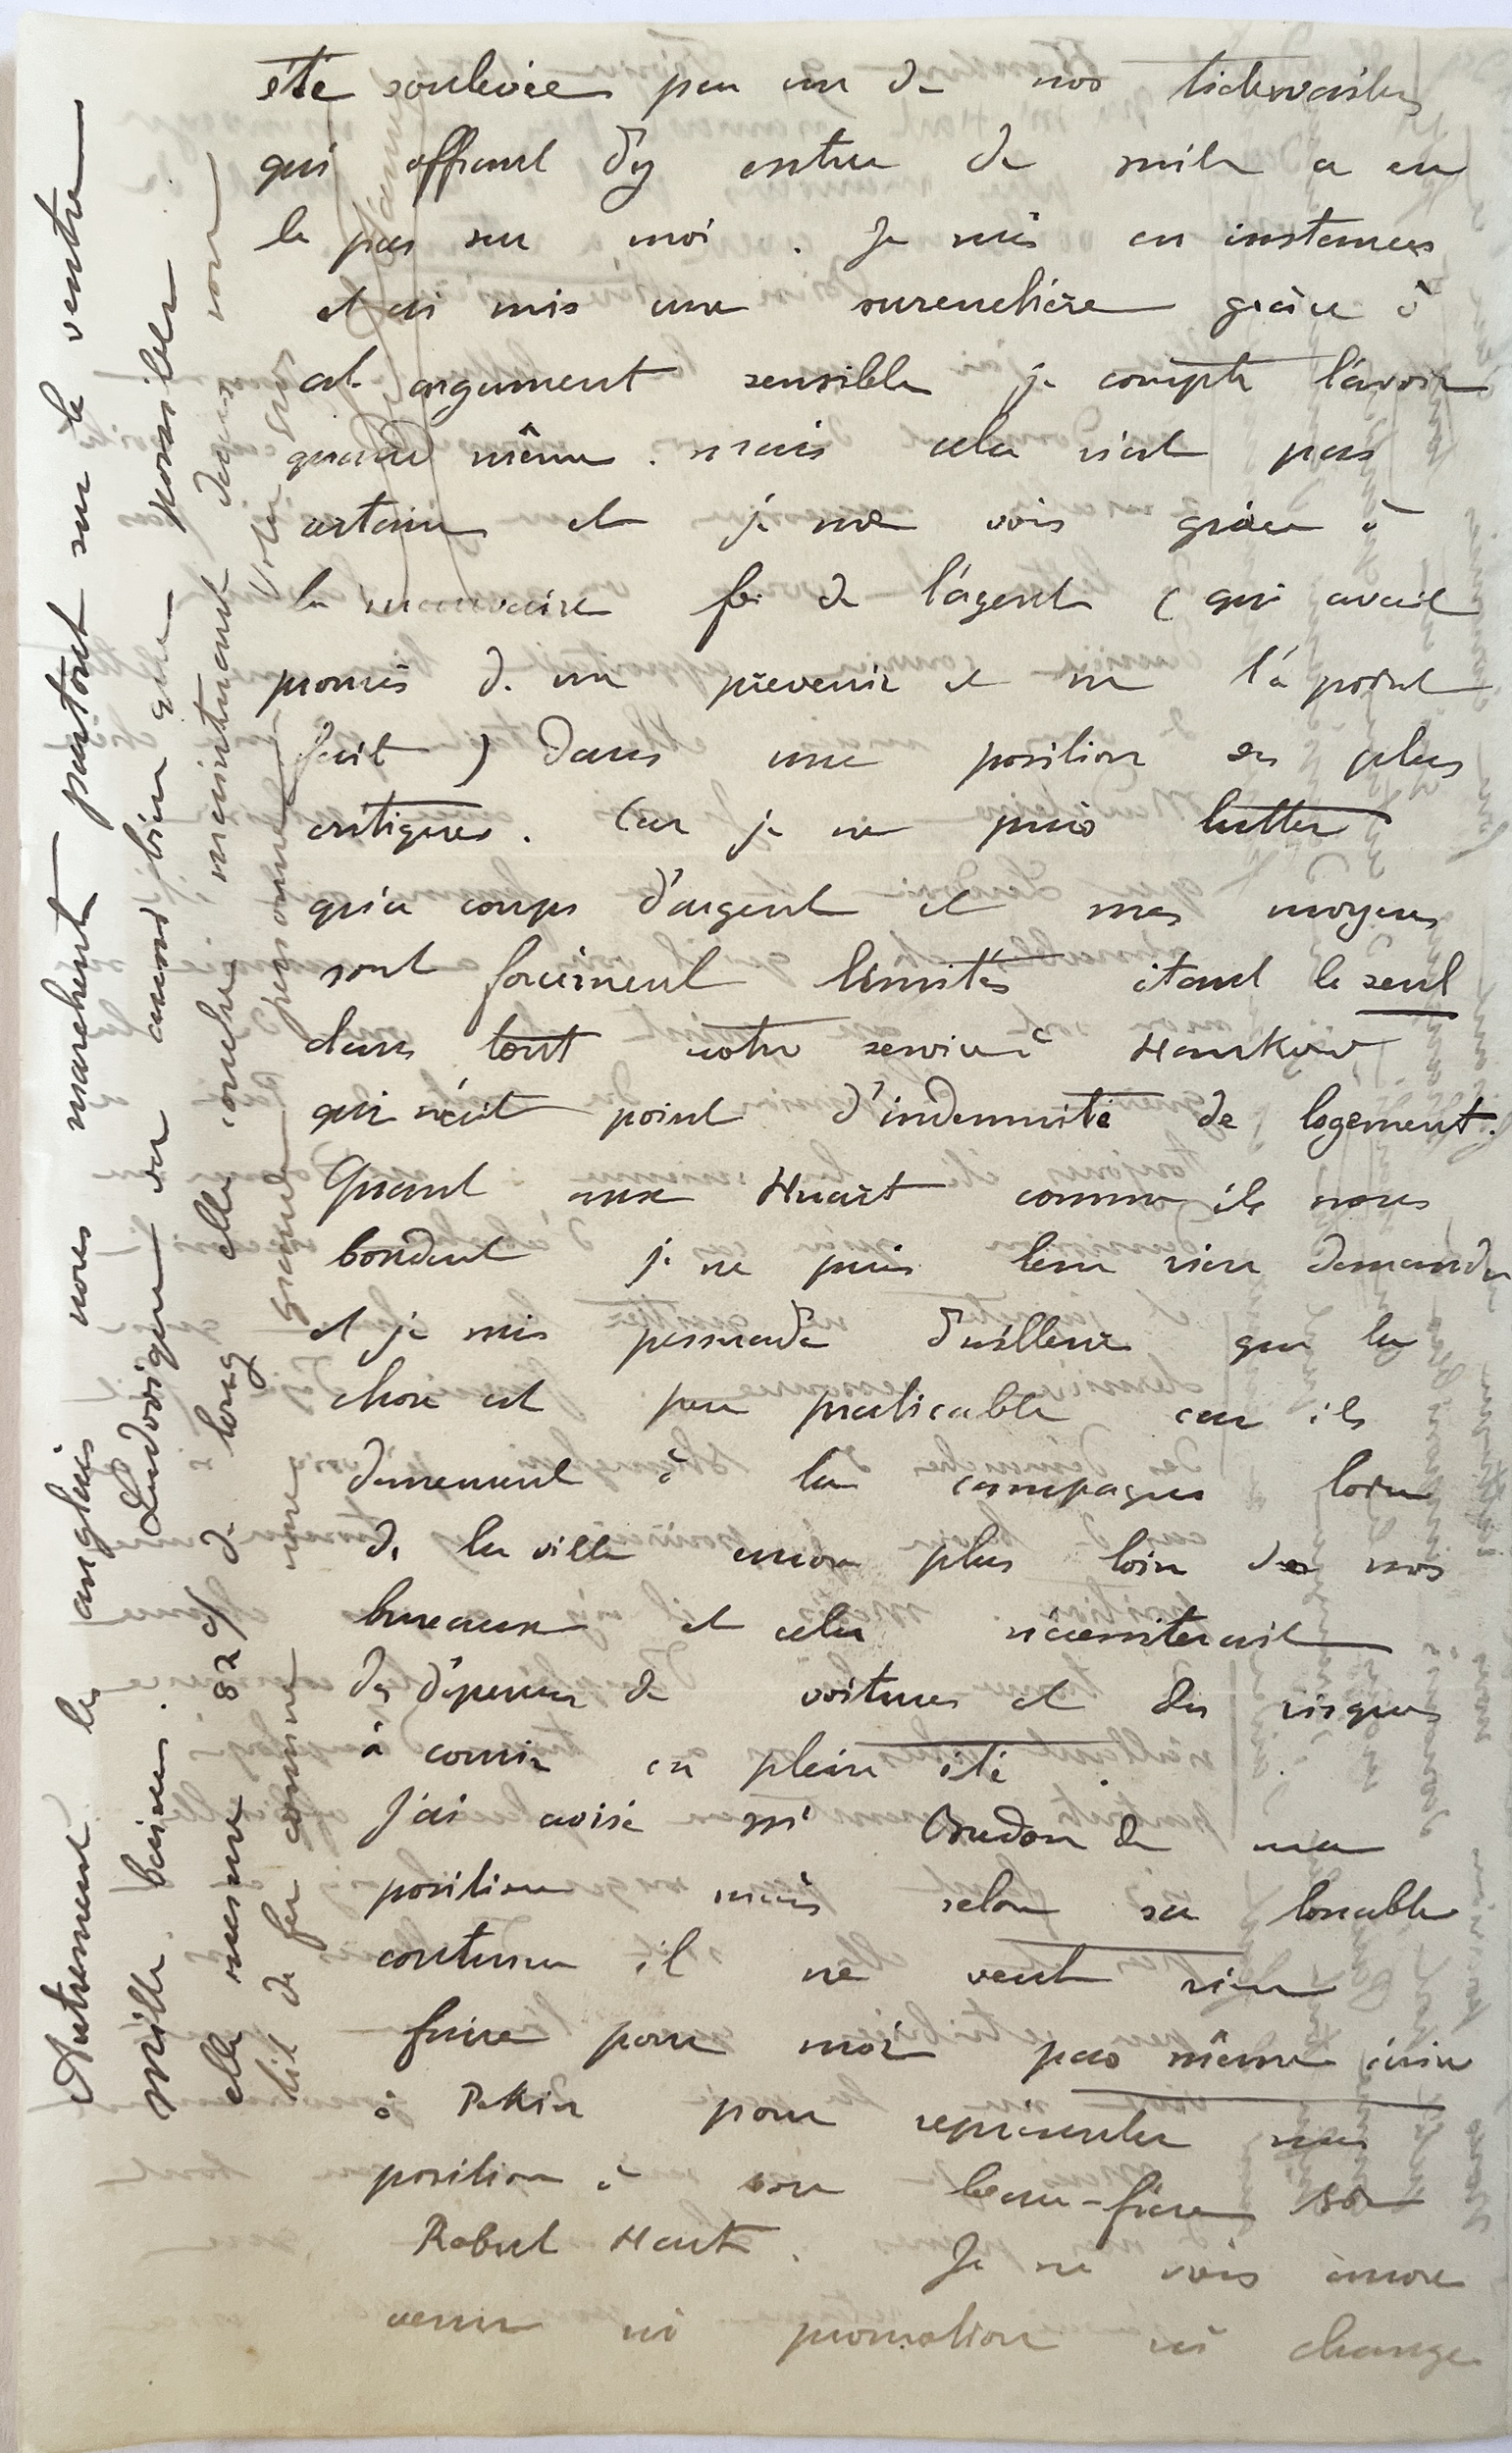 été soulevée par un de nos tidewaiters
qui offrant d'y entrer de suite a eu
le pas sur moi. Je suis en instances
et ai mis une surenchère grâce à
cet argument sensible je compte l'avoir
quand même. mais cela n'est pas
certain et je me vois grâce à
la mauvaise foi de l'agent (qui avait
promis de me prévenir et ne l'a point
fait) dans une position des plus
critiques. Car je ne puis lutter
qu'à coups d'argent et mes moyens
sont forcément limités étant le seul
dans tout notre service à Hankow
qui n'ait point d'indemnité de logement.
Quant aux Huart comme ils nous
boudent je ne puis leur rien demander
et je suis persuadé d'ailleurs que la
chose est peu praticable car ils
demeurent à la campagne loin
de la ville encore plus loin de nos
bureaux et cela nécessiterait
des dépenses de voitures et des risques
à courir en plein été.
J'ai avisé Mr Bredon de ma
position mais selon sa louable
coutume il ne veut rien
faire pour moi pas même écrire
à Pekin pour représenter ma
position à son beau-frère Sir
Robert Hart. Je ne vois encore
venir ni promotion ni change
Autrement les anglais nous marchent partout sur le ventre
Mille baisers. Ludovique va aussi bien que possible.
elle mesure 82 c/ de long elle couche maintenant dans son
lit de fer comme une grande personne. Votre